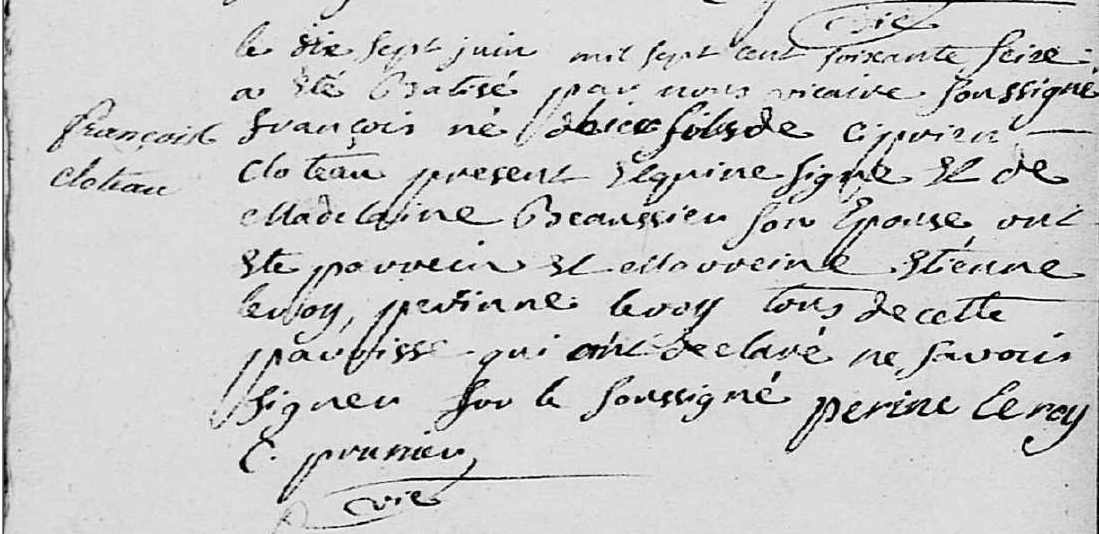 vie
le dix sept juin mil sept cent soixante seize
a été Batisé par nous vicaire soussigné
françois
cloteau
françois né d'hier fils de ciprien
cloteau present Et qui ne signe Et de
Madelaine Beaussier son Epouse ont
Ete parrein Et Marreine Etienne
leroy, perinne leroy tous de cette
parroisse qui ont declaré ne savoir
signer for le soussigné perine leroy
C. prunier,
vie